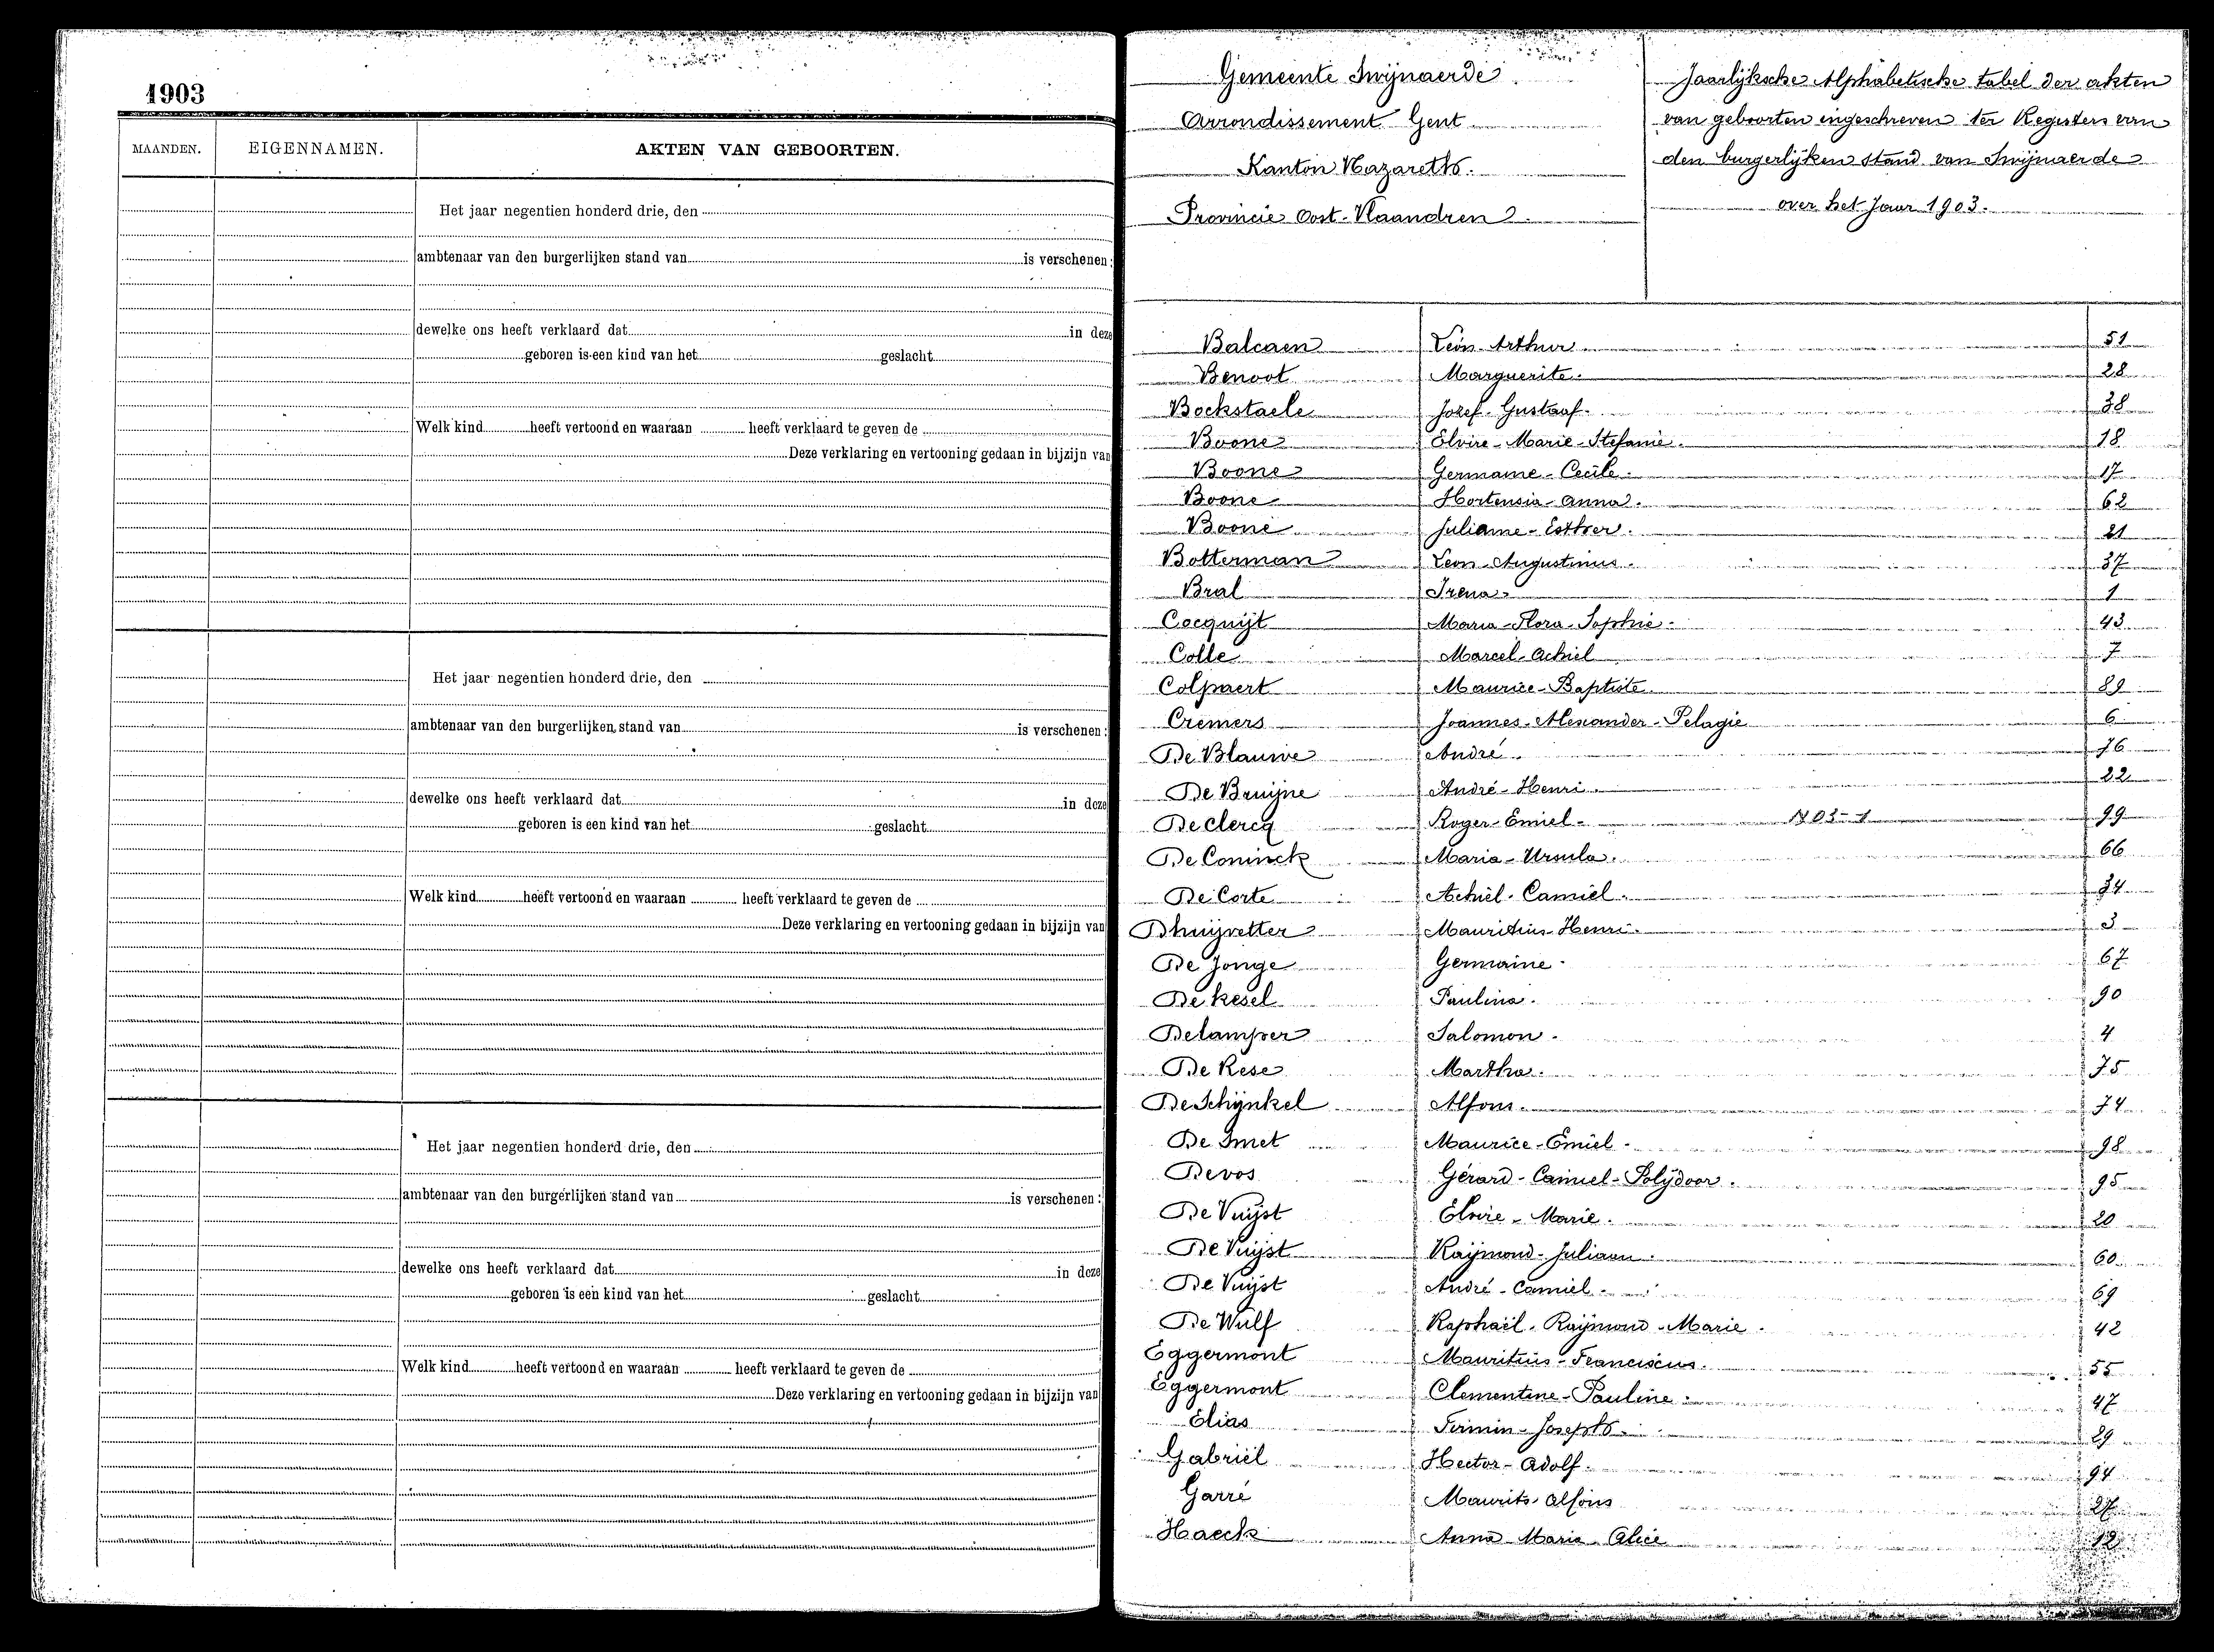 1903
MAANDEN. EIGENNAMEN. AKTEN VAN GEBOORTEN.
Het jaar negentien honderd drie, den
ambtenaar van den burgerlijken stand van is verschenen:
dewelke ons heeft verklaard dat in deze
geboren is een kind van het geslacht
Welk kind heeft vertoond en waaraan heeft verklaard te geven de
Deze verklaring en vertooning gedaan in bijzijn van
Het jaar negentien honderd drie, den
ambtenaar van den burgerlijken stand van is verschenen:
dewelke ons heeft verklaard dat in deze
geboren is een kind van het geslacht
Welk kind heeft vertoond en waaraan heeft verklaard te geven de
Deze verklaring en vertooning gedaan in bijzijn van
Het jaar negentien honderd drie, den
ambtenaar van den burgerlijken stand van is verschenen:
dewelke ons heeft verklaard dat in deze
geboren is een kind van het geslacht
Welk kind heeft vertoond en waaraan heeft verklaard te geven de
Deze verklaring en vertooning gedaan in bijzijn van
Gemeente Swijnaerde.
Arrondissement Gent
Kanton Nazareth.
Provincie Oost-Vlaandren.
Jaarlijksche Alphabetische tabel der akten
van geboorten ingeschreven ter Registers van
den burgerlijken stand van Swijnaerde
over het Jaar 1903.
Balcaen Léon-Arthur 51
Benoot Marguerite. 28
Bockstaele Jozef-Gustaaf. 38
Boone Elvire-Marie-Stefanie. 18
Boone Germaine-Cecile. 17
Boone Hortensia-Anna. 62
Boone Juliame-Esther. 21
Botterman Leon-Augustinus. 37
Bral Irena 1
Cocquijt Maria-Flora-Sophie. 43
Colle Marcel-Achiel 7
Colpaert Maurice-Baptiste. 89
Cremers Joannes-Alexander-Pelagie 6
De Blauwe André. 76
De Bruijne André-Henri. 22
De Clercq Roger-Emiel- 1903-1 99
De Coninck Maria-Ursula. 66
De Corte Achiel-Camiel. 34
Dhuijvetter Mauritius-Henri. 3
De Jonge Germaine. 67
De Kesel Paulina. 90
Delamper Salomon. 4
De Rese Martha. 75
De Schijnkel Alfons. 74
De Smet Maurice-Emiel. 98
Devos Gérard-Camiel-Polydoor. 95
De Vuijst Elvire-Marie. 20
De Vuijst Raijmond-Juliaan. 60
De Vuijst André-Camiel. 69
De Wulf Raphaël-Raijmond-Marie. 42
Eggermont Mauritius-Franciscus. 55
Eggermont Clementine-Pauline. 47
Elias Firmin-Joseph. 29
Gabriël Hector-Adolf. 94
Garré Maurits-Alfons 27
Haeck Anna-Maria-Alice 12